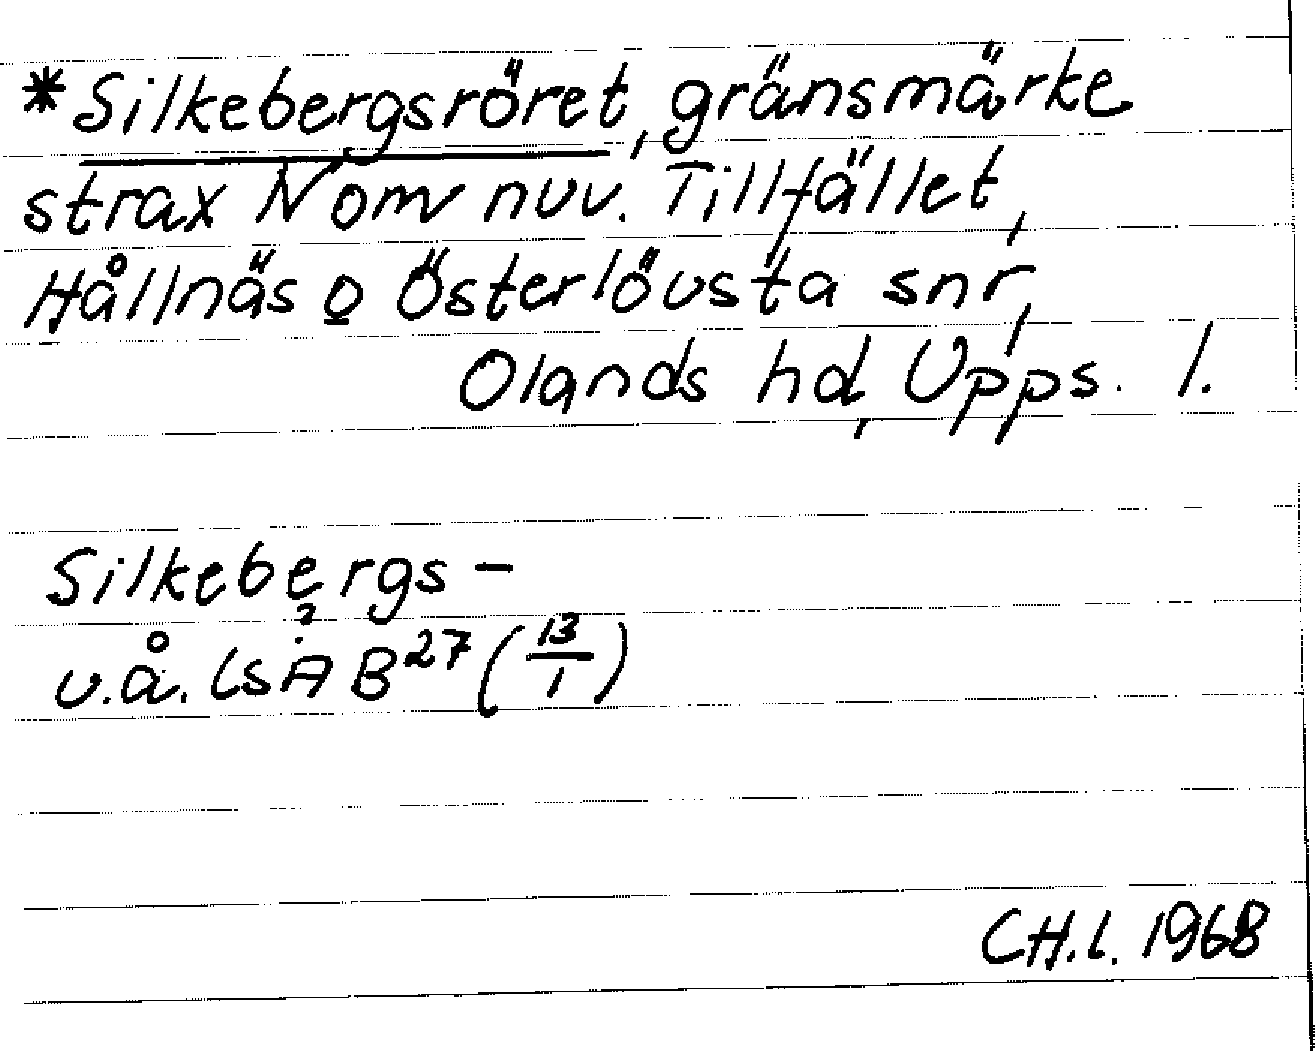 *Silkebergsröret, gränsmärke
strax N om nuv. Tillfället,
Hållnäs o Österlövsta snr,
Olands hd, Upps. l.
Silkebergs-
u.å. LSA B27 (13/1)
CH.L. 1968